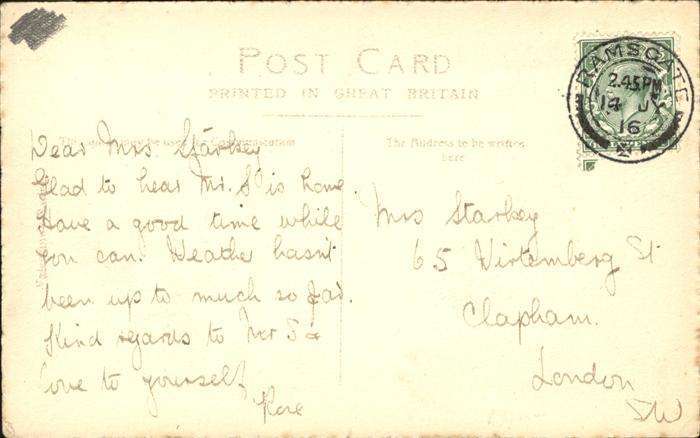 POST CARD
PRINTED IN GREAT BRITAIN
The Address to be written
here
RAMSGATE
2.45 PM
14 JY
16
Dear Mrs Starkey
Glad to hear Mr. S is home.
Have a good time while
you can. Weather hasn't
been up to much so far.
Kind regards to Mr S &
love to yourself
Rose
Mrs Starkey
65 Wirtemberg St
Clapham.
London
SW